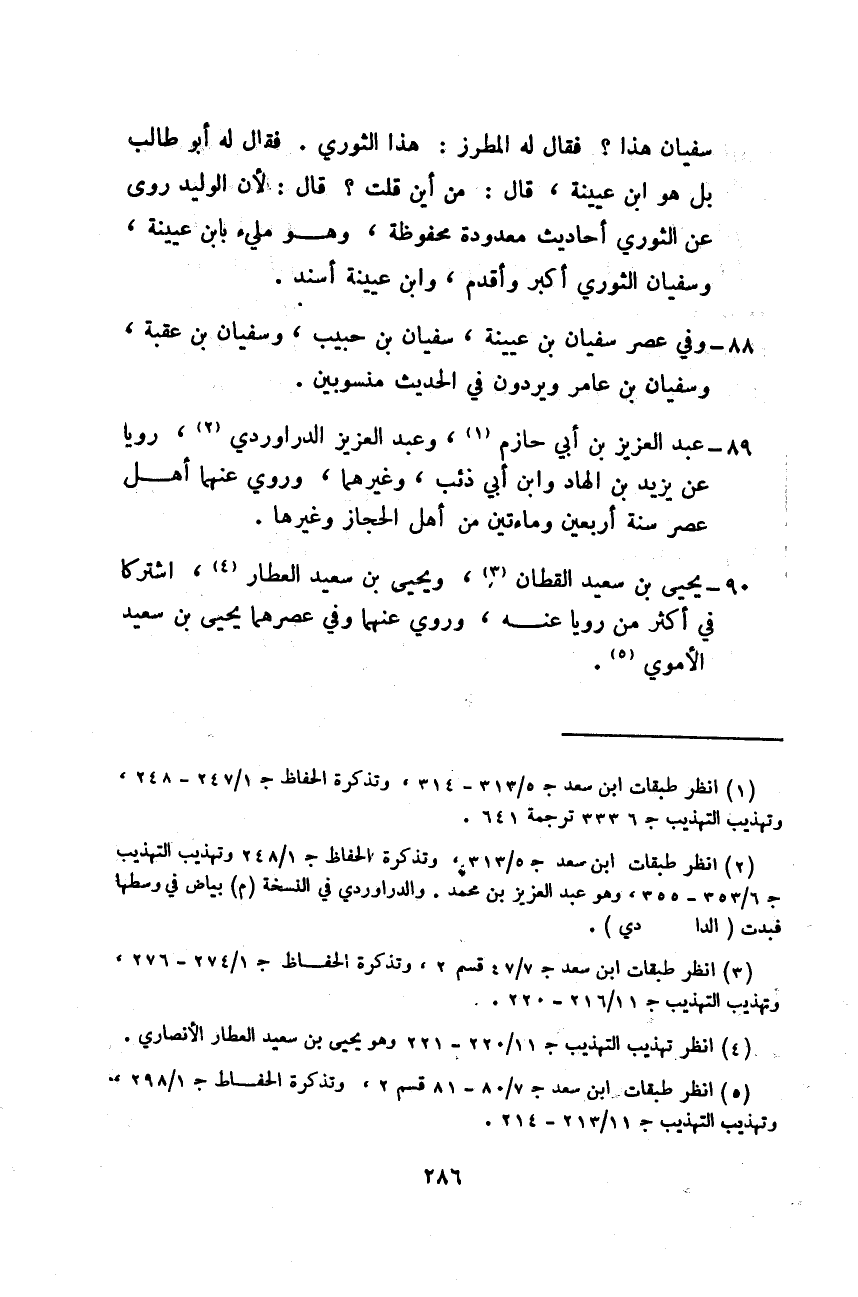 سفيان هذا ؟ فقال له المطرز : هذا الثوري . فقال له أبو طالب
بل هو ابن عيينة ، قال : من أين قلت ؟ قال : لأن الوليد روى
عن الثوري أحاديث معدودة محفوظة ، وهـــو مليء بابن عيينة ،
وسفيان الثوري أكبر وأقدم ، وابن عيينة أسند .
٨٨ – وفي عصر سفيان بن عيينة ، سفيان بن حبيب ، وسفيان بن عقبة ،
وسفيان بن عامر ويردون في الحديث منسوبين .
٨٩ – عبد العزيز بن أبي حازم (١) ، وعبد العزيز الدراوردي (٢) ، رويا
عن يزيد بن الهاد وابن أبي ذئب ، وغيرهما ، وروي عنهما أهـــل
عصر سنة أربعين وماءتين من أهل الحجاز وغيرها .
٩٠ – يحيى بن سعيد القطان (٣) ، ويحيى بن سعيد العطار (٤) ، اشتركا
في أكثر من رويا عنـــه ، وروي عنهما وفي عصرهما يحيى بن سعيد
الأموي (٥) .
(١) انظر طبقات ابن سعد ج ٣١٣/٥ – ٣١٤ ، وتذكرة الحفاظ ج ٢٤٧/١ – ٢٤٨ ،
وتهذيب التهذيب ج ٦ ٣٣٣ ترجمة ٦٤١ .
(٢) انظر طبقات ابن سعد ج ٣١٣/٥ ، وتذكرة الحفاظ ج ٢٤٨/١ وتهذيب التهذيب
ج ٣٥٣/٦ – ٣٥٥ ، وهو عبد العزيز بن محمد . والدراوردي في النسخة (م) بياض في وسطها
فبدت ( الدا دي ) .
(٣) انظر طبقات ابن سعد ج ٤٧/٧ قسم ٢ ، وتذكرة الحفـــاظ ج ٢٧٤/١ – ٢٧٦ ،
وتهذيب التهذيب ج ٢١٦/١١ – ٢٢٠ .
(٤) انظر تهذيب التهذيب ج ٢٢٠/١١ – ٢٢١ وهو يحيى بن سعيد العطار الأنصاري .
(٥) انظر طبقات ابن سعد ج ٨٠/٧ – ٨١ قسم ٢ ، وتذكرة الحفـــاط ج ٢٩٨/١ ،
وتهذيب التهذيب ج ٢١٣/١١ – ٢١٤ .
٢٨٦